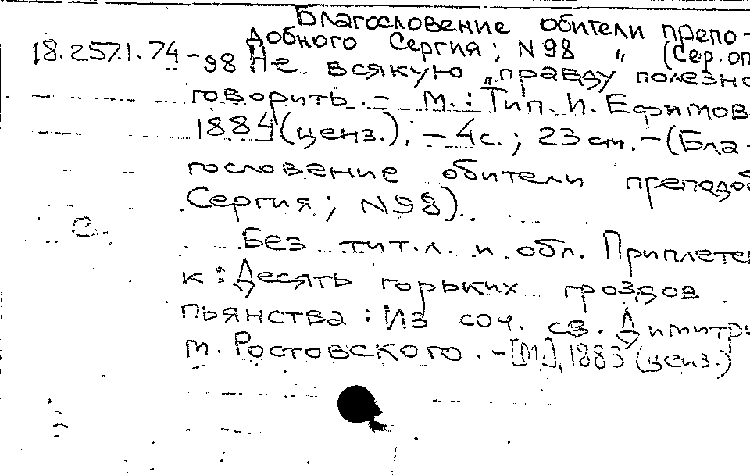 Благословение обители препо-
добного Сергия; N98 " (Сер.оп
18.257.1.74-98 Не всякую „правду полезно
говорить. - М.: Тип. И. Ефимов
1884 (ценз.). - 4с.; 23 cm. - (Бла-
гословение обители преподоб
Сергия; N98).
С.
Без тит.л. и обл. Приплетен
к: Десять горьких гроздов
пьянства: Из соч. св. Димитри
м. Ростовского. - [М.], 1883 (ценз.)